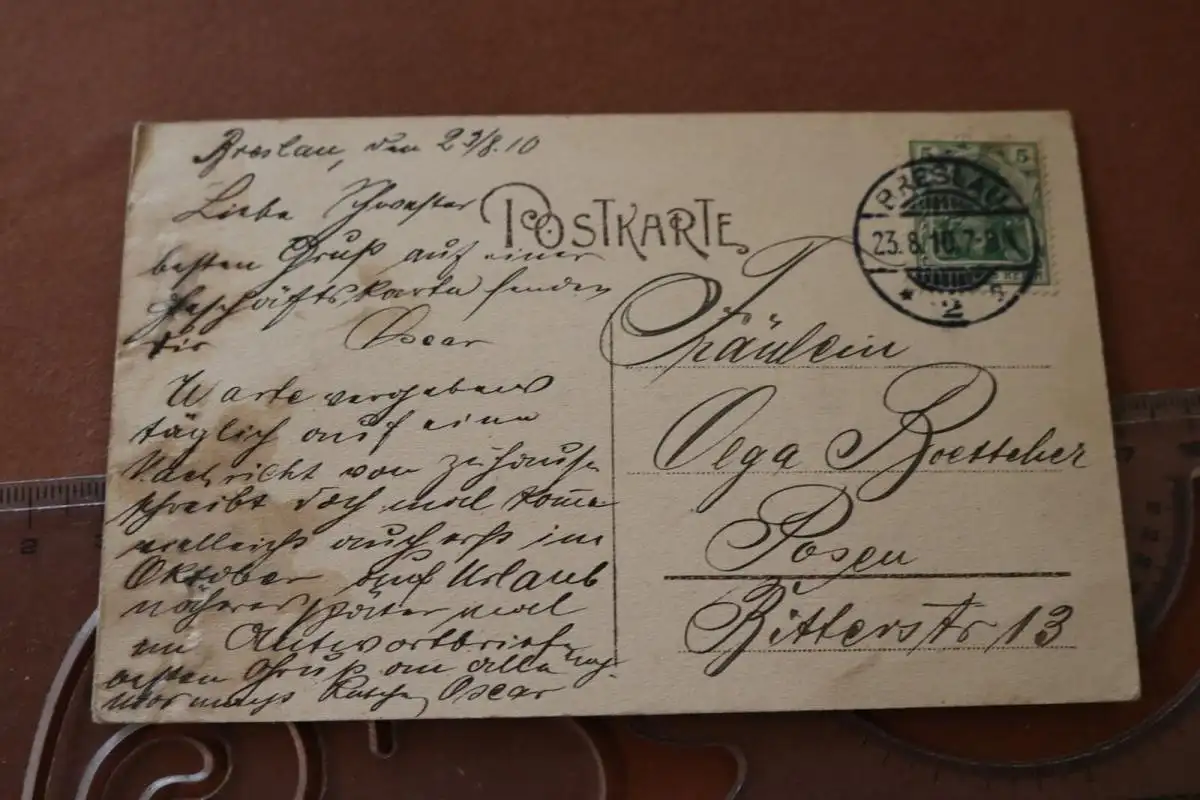 Breslau, den 23/8.10
Liebe Schwester
besten Gruß auf einer
Geschäftskarte senden
dir Oscar
Warte vergebens
täglich auf eine
Nachricht von zuhause
schreibt doch mal komme
vielleicht auch erst im
Oktober auf Urlaub
näheres später mal
im Antwortbriefe
besten Gruß an alle
nochmals Oscar
POSTKARTE
5 5
BRESLAU
23.8.10.7-8
* 2
Fräulein
Olga Boettcher
Posen
Ritterstr 13
2